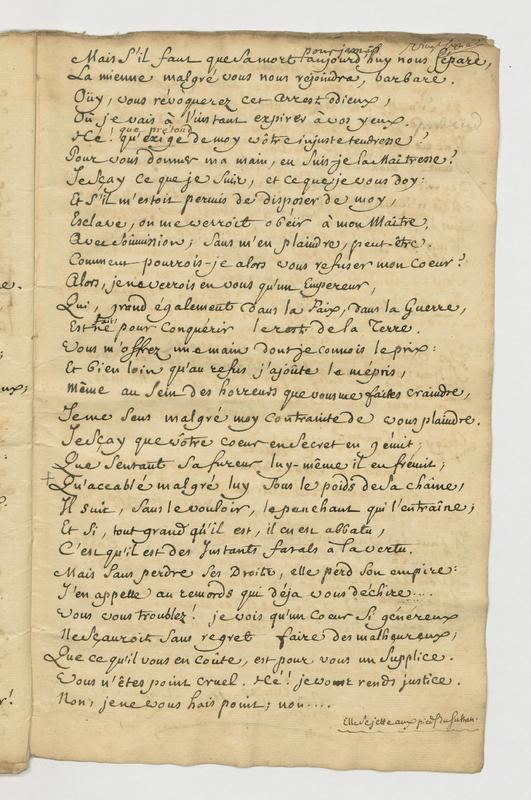 pour jamais
Mais s'il faut que sa mort aujourd'huy nous sépare,
La mienne malgré vous nous rejoindra, barbare.
Oüy, vous révoquerez cet arrest odieux,
Ou je vais à l'instant expirer à vos yeux.
que prétend
Hé! qu'exige de moy vôtre injuste tendresse?
Pour vous donner ma main, en suis-je la Maîtresse?
Je sçay ce que je suis, et ce que je vous doy:
Et s'il m'estoit permis de disposer de moy,
Esclave, on me verroit obéir à mon Maître,
Avec soûmission; sans m'en plaindre, peut-être.
Comment pourrois-je alors vous refuser mon coeur?
Alors, je ne verrois en vous qu'un Empereur,
Qui, grand également dans la Paix, dans la Guerre,
Est né pour Conquérir le reste de la Terre.
Vous m'offrez une main dont je connois le prix:
Et bien loin qu'au refus j'ajoûte le mépris,
Même au sein des horreurs que vous me faites craindre,
Je me sens malgré moy contrainte de vous plaindre.
Je sçay que vôtre coeur en secret en gémit;
Que sentant sa fureur luy-même il en frémit;
+ Qu'accablé malgré luy sous le poids de sa chaîne,
Il suit, sans le vouloir, le penchant qui l'entraîne;
Et si, tout grand qu'il est, il en est abbatu,
C'est qu'il est des Instants fatals à la vertu.
Mais sans perdre ses Droits, elle perd son empire:
J'en appelle au remords qui déja vous déchire....
Vous vous troublez! je vois qu'un Coeur si généreux
Ne sçauroit sans regret faire des malheureux;
Que ce qu'il vous en coûte, est pour vous un supplice.
Vous n'êtes point cruel. Hé! je vous rends justice.
Non; je ne vous hais point; non....
Elle se jette aux pieds du sultan.